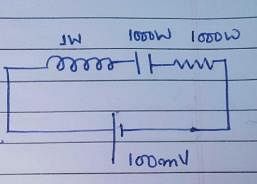 1W 1000W 1000W
100mV